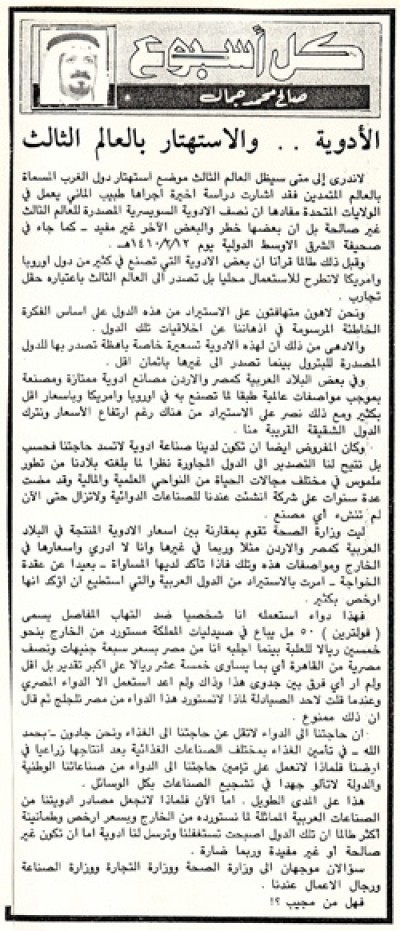 كل أسبوع
صالح محمد جمال
الأدوية .. والاستهتار بالعالم الثالث
لاندرى إلى متى سيظل العالم الثالث موضع استهتار دول الغرب المسماة
بالعالم المتمدين فقد اشارت دراسة اخيرة اجراها طبيب المانى يعمل في
الولايات المتحدة مفادها ان نصف الادوية السويسرية المصدرة للعالم الثالث
غير صالحة بل ان بعضها خطر والبعض الآخر غير مفيد ـ كما جاء في
صحيفة الشرق الاوسط الدولية يوم ١٤١٠/٢/١٢هـ .
وقبل ذلك طالما قرانا ان بعض الادوية التي تصنع في كثير من دول اوروبا
وامريكا لاتطرح للاستعمال محليا بل تصدر الى العالم الثالث باعتباره حقل
تجارب .
ونحن لاهون متهافتون على الاستيراد من هذه الدول على اساس الفكرة
الخاطئة المرسومة في اذهاننا عن اخلاقيات تلك الدول .
والادهى من ذلك ان لهذه الادوية تسعيرة خاصة باهظة تصدر بها للدول
المصدرة للبترول بينما تصدر الى غيرها باثمان اقل .
وفي بعض البلاد العربية كمصر والاردن مصانع ادوية ممتازة ومصنعة
بموجب مواصفات عالمية طبقا لما تصنع به في اوروبا وامريكا وباسعار اقل
بكثير ومع ذلك نصر على الاستيراد من هناك رغم ارتفاع الأسعار ونترك
الدول الشقيقة القريبة منا .
وكان المفروض ايضا ان تكون لدينا صناعة ادوية لاتسد حاجتنا فحسب
بل تتيح لنا التصدير الى الدول المجاورة نظرا لما بلغته بلادنا من تطور
ملموس في مختلف مجالات الحياة من النواحي العلمية والمالية وقد مضت
عدة سنوات على شركة انشئت عندنا للصناعات الدوائية ولاتزال حتى الآن
لم تنشىء أي مصنع .
ليت وزارة الصحة تقوم بمقارنة بين اسعار الادوية المنتجة في البلاد
العربية كمصر والاردن مثلا وربما في غيرها وانا لا ادري واسعارها في
الخارج ومواصفات هذه وتلك فاذا تأكد لديها المساواة ـ بعيدا عن عقدة
الخواجة ـ امرت بالاستيراد من الدول العربية والتي استطيع ان اؤكد انها
ارخص بكثير .
فهذا دواء استعمله انا شخصيا ضد التهاب المفاصل يسمى
( فولترين ) ٥٠ مل يباع في صيدليات المملكة مستورد من الخارج بنحو
خمسين ريالا للعلبة بينما اجلبه انا من مصر بسعر سبعة جنيهات ونصف
مصرية من القاهرة أي بما يساوى خمسة عشر ريالا على اكبر تقدير بل اقل
ولم ار أي فرق بين جدوى هذا وذاك ولم اعد استعمل الا الدواء المصري
وعندما قلت لاحد الصيادلة لماذا لاتستورد هذا الدواء من مصر تلجلج ثم قال
ان ذلك ممنوع .
ان حاجتنا الى الدواء لاتقل عن حاجتنا الى الغذاء ونحن جادون ـ بحمد
الله ـ في تأمين الغذاء بمختلف الصناعات الغذائية بعد انتاجها زراعيا في
ارضنا فلماذا لانعمل على تأمين حاجتنا الى الدواء من صناعاتنا الوطنية
والدولة لاتألو جهدا في تشجيع الصناعات بكل الوسائل .
هذا على المدى الطويل . اما الآن فلماذا لانجعل مصادر ادويتنا من
الصناعات العربية المماثلة لما نستورده من الخارج وبسعر ارخص وطمانينة
أكثر طالما ان تلك الدول اصبحت تستغفلنا وترسل لنا ادوية اما ان تكون غير
صالحة أو غير مفيدة وربما ضارة .
سؤالان موجهان الى وزارة الصحة ووزارة التجارة ووزارة الصناعة
ورجال الاعمال عندنا .
فهل من مجيب ؟!